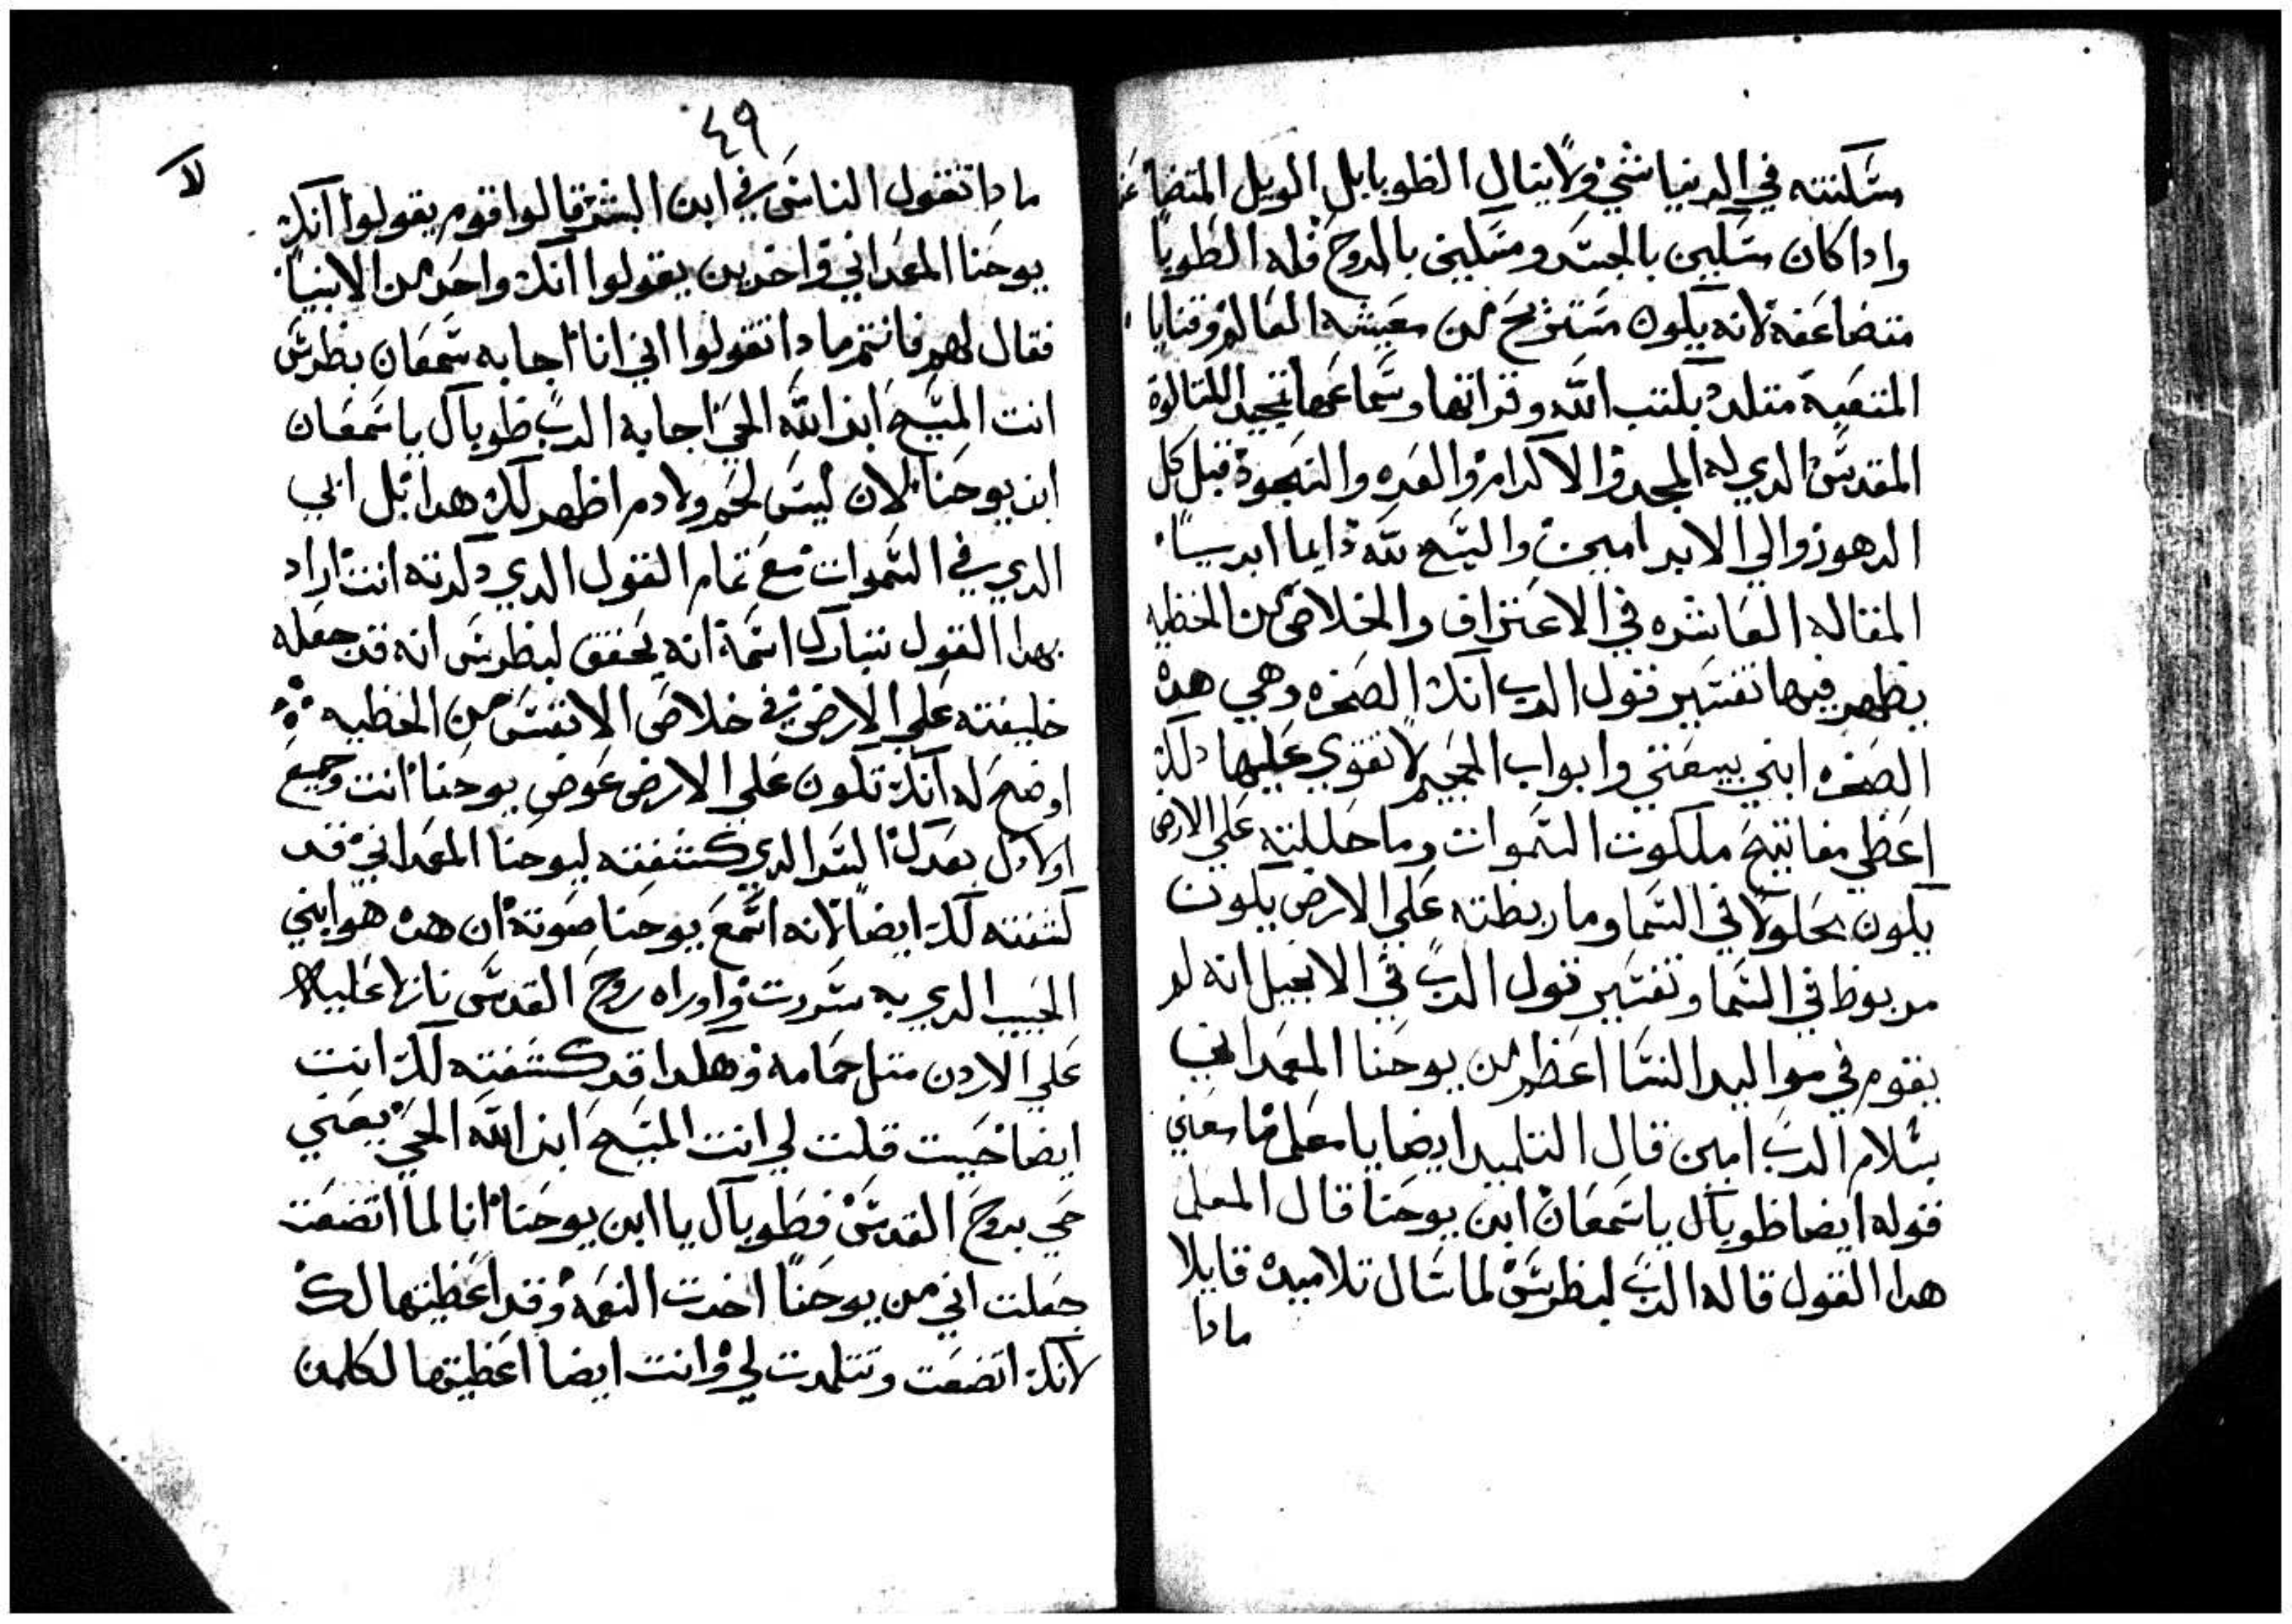 مسكنته في الدنيا شي ولا ينال الطوبا بل الويل المتضاعف
وادا كان مسكين بالجسد ومسكين بالروح فله الطوبا
متضاعفه لانه يكون مستريح من معيشه العالم وقنايا
المتعبه متلدد بكتب الله وقراتها وسماعها تمجيد للتالوت
المقدس الدي له المجد والاكرام والعزه والسجود قبل كل
الدهور والي الابد امين والسبح لله دايما ابديا
المقاله العاشره في الاعتراف والخلاص من الخطيه
يظهر فيها تفسير قول الرب انك الصخره وهي هده
الصخره ابني بيعتي وابواب الجحيم لا تقوي عليها لك
اعطي مفاتيح ملكوت السموات وما حللته علي الارض
يكون محلولا في السما وما ربطته علي الارض يكون
مربوط في السما وتفسير قول الرب في الانجيل انه لم
يقوم في مواليد النسا اعظم من يوحنا المعمداني
بسلام الرب امين قال التلميد ايضا يا معلم ما معني
قوله ايضا طوباك ياسمعان ابن يوحنا قال المعلم
هدا القول قاله الرب لبطرس لما سال تلاميده قايلا
مادا
٤٩
لا
مادا تقول الناس في ابن البشر قالوا قوم يقولوا انك
يوحنا المعمداني واخرين يقولوا انك واحد من الانبيا
فقال لهم فانتم مادا تقولوا اني انا اجابه سمعان بطرس
انت المسيح ابن الله الحي اجابه الرب طوباك ياسمعان
ابن يوحنا لان ليس لحم ولا دم اظهر لك هدا بل ابي
الدي في السموات مع تمام القول الدي دكرته انت اراد
بهدا القول تبارك اسمه انه يحقق لبطرس انه قد جعله
خليفته علي الارض في خلاص الانفس من الخطيه
اوضح له انك تكون علي الارض عوض يوحنا انت وجميع
اولادك بعدك السر الدي كشفته ليوحنا المعمداني قد
كشفته لك ايضا لانه اسمع يوحنا صوته ان هدا هو ابني
الحبيب الدي به سررت واوراه روح القدس نازلا عليه
علي الاردن متل حمامه وهكدا قد كشفته لك انت
ايضا حيت قلت لي انت المسيح ابن الله الحي يعني
حي بروح القدس فطوباك يا ابن يوحنا انا لما اتضعت
جعلت اني من يوحنا اخدت النعمه وقد اعطيتها لك
لانك اتضعت وتتلمدت لي وانت ايضا اعطيتها لكلمن